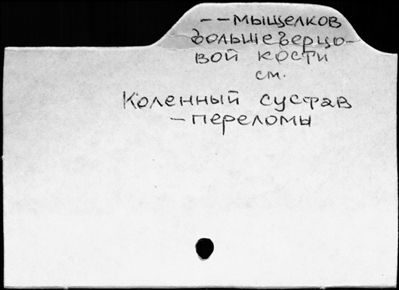 --мыщелков
большеберцо-
вой кости
см.
Коленный сустав
-переломы